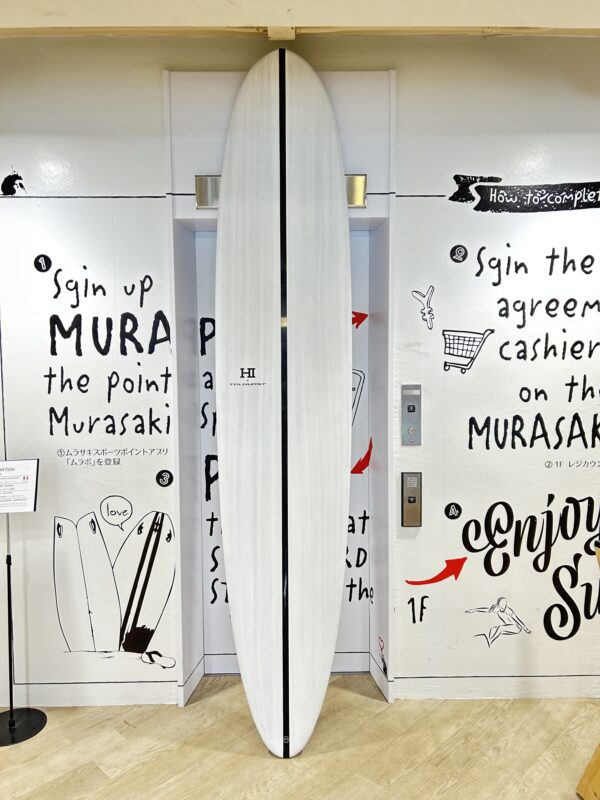 How to complet
1
Sgin up
MURA
the point
Murasaki
①ムラサキスポーツポイントアプリ
「ムラポ」を登録
3
love
HI
TOLHURST
P
a
sp
P
t
S
ST
at
RD
the
2
Sgin the
agreem
cashier
on th
MURASAK
② 1F レジカウン
4
Enjoy
Su
1F